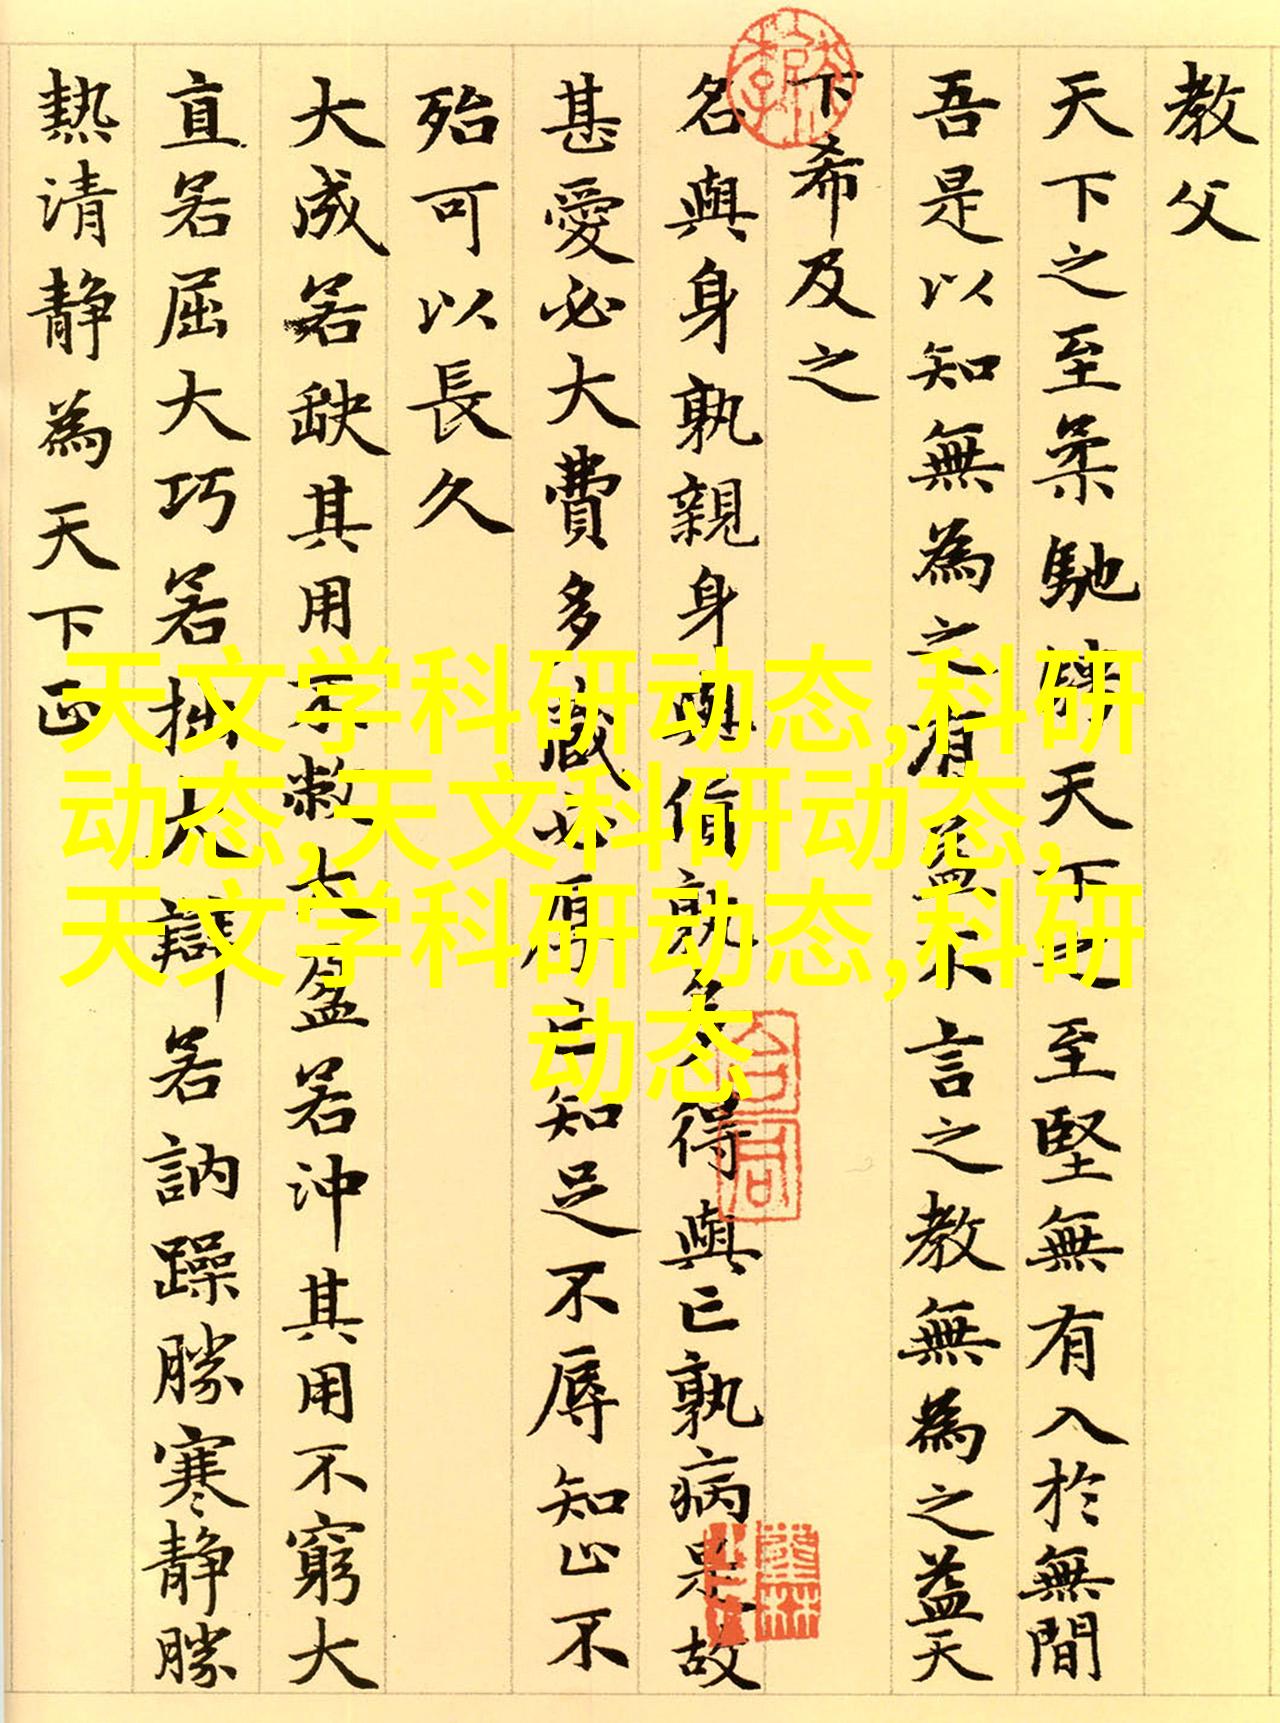 教父
天下之至柔馳騁天下之至堅無有入於無間
吾是以知無為之有益不言之教無為之益天
下希及之
名與身孰親身與貨孰多得與亡孰病是故
甚愛必大費多藏必厚亡知足不辱知止不
殆可以長久
大成若缺其用不敝大盈若沖其用不窮大
直若屈大巧若拙大辯若訥躁勝寒静勝
熱清静為天下正
天文学科研动态,科研
动态,天文科研动态,
天文学科研动态,科研
动态